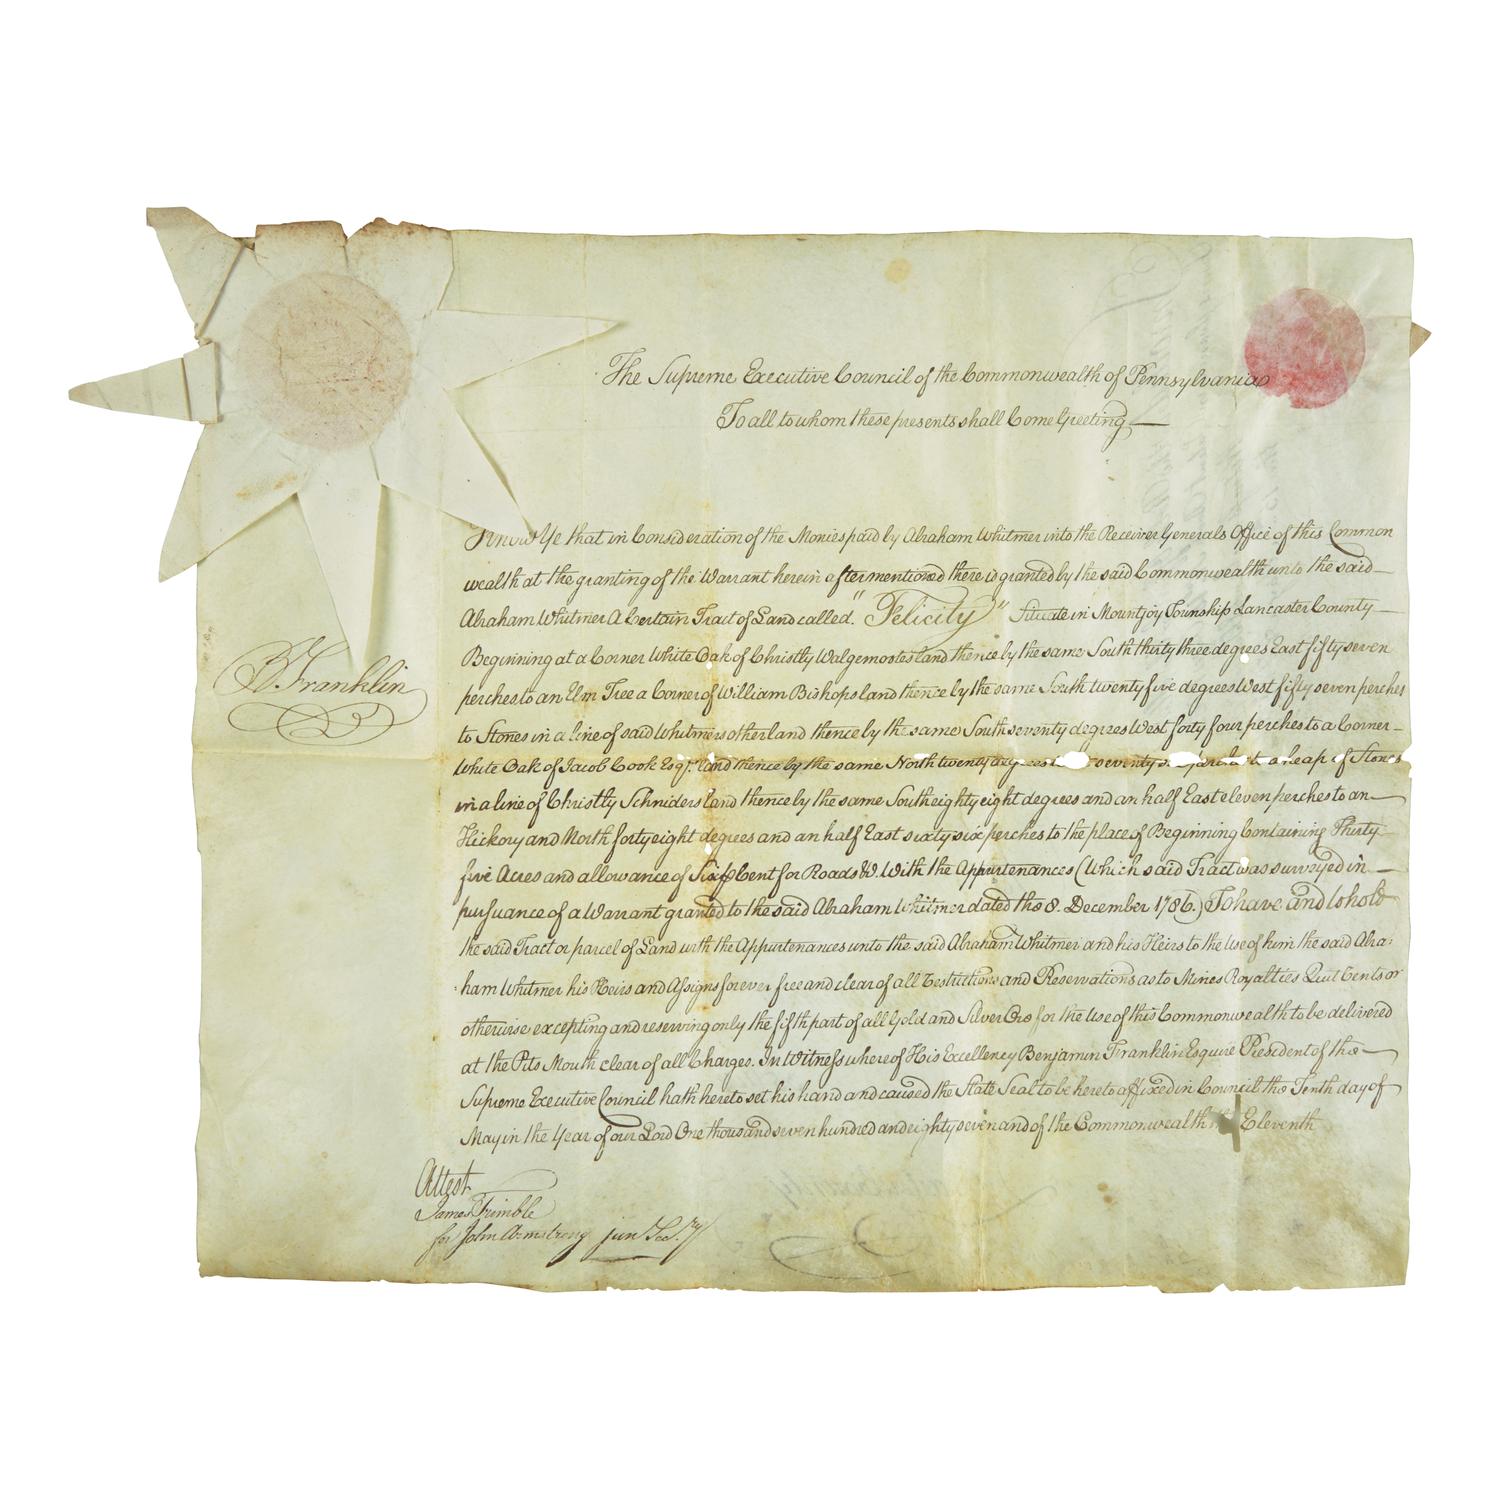 The Supreme Executive Council of the Commonwealth of Pennsylvania
To all to whom these presents shall Come Greeting
Know Ye that in Consideration of the Monies paid by Abraham Whitmer into the Receiver Generals Office of this Common
wealth at the granting of the Warrant herein after mentioned there is granted by the said Commonwealth unto the said
Abraham Whitmer A Certain Tract of Land called "Felicity" Situate in Mountjoy Township Lancaster County
Beginning at a Corner White Oak of Christly Walgemootes land thence by the same South thirty three degrees East fifty seven
perches to an Elm Tree a Corner of William Bishops land thence by the same South twenty five degrees West fifty seven perches
to Stones in a line of said Whitmers other land thence by the same South seventy degrees West forty four perches to a Corner
White Oak of Jacob Cook Esqr. land thence by the same North twenty degrees seventy to a heap of Stones
in a line of Christly Schniders land thence by the same South eighty eight degrees and an half East eleven perches to an
Hickory and North forty eight degrees and an half East sixty six perches to the place of Beginning Containing Thirty
five Acres and allowance of Six [per] Cent for Roads &c. With the Appurtenances (Which said Tract was surveyed in
pursuance of a Warrant granted to the said Abraham Whitmer dated the 8. December 1786.) To have and to hold
the said Tract or parcel of Land with the Appurtenances unto the said Abraham Whitmer and his Heirs to the Use of him the said Abra:
:ham Whitmer his Heirs and Assigns forever free and clear of all Restrictions and Reservations as to Mines Royalties Quit Rents or
otherwise excepting and reserving only the fifth part of all Gold and Silver Ore for the Use of this Commonwealth to be delivered
at the Pits Mouth clear of all Charges. In Witness whereof His Excellency Benjamin Franklin Esquire President of the
Supreme Executive Council hath hereto set his hand and caused the State Seal to be hereto affixed in Council the Tenth day of
May in the Year of our Lord One thousand seven hundred and eighty seven and of the Commonwealth the Eleventh
B. Franklin
Attest
James Trimble
for John Armstrong jun Sec.ry